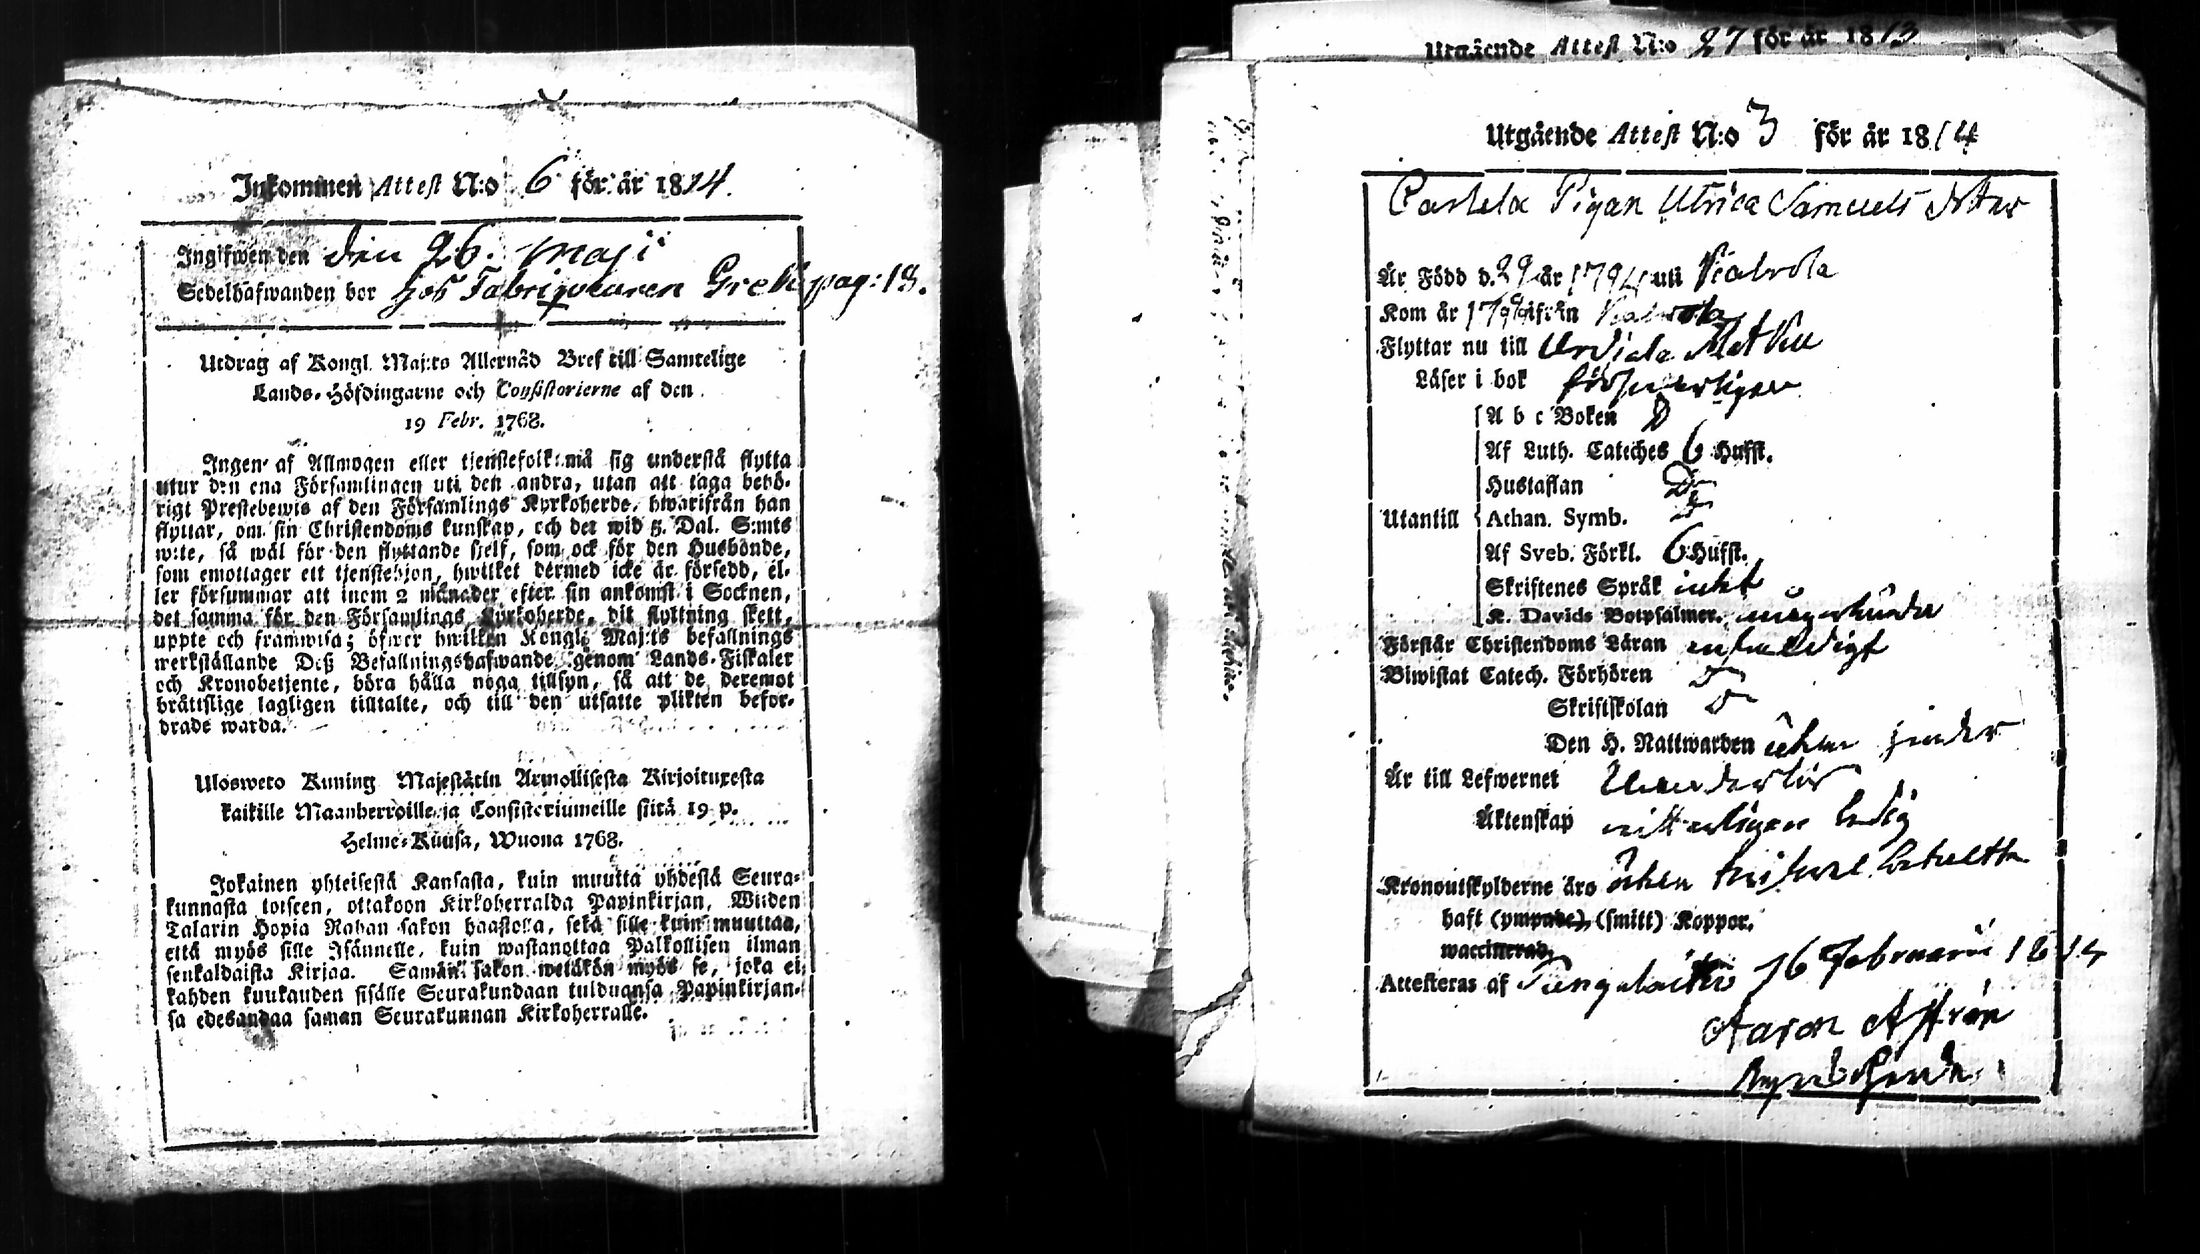 Inkommen Attest N:o 6 för år 1814.
Ingifwen den den 26. Maji
Sedelhafwanden bor hos Fabriqueuren Grell pag: 18.
Utdrag af Kongl. Maj:ts Allernåd Bref till Samtelige
Lands-Höfdingarne och Consistorierne af den
19 Febr. 1768.
Ingen af Allmogen eller tjenstefolk må sig understå flytta
utur den ena Församlingen uti den andra, utan att taga behö-
rigt Prestebewis af den Församlings Kyrkoherde, hwarifrån han
flyttar, om sin Christendoms kunskap, och det wid 5. Dal. S:mts
wite, så wäl för den flyttande sjelf, som ock för den Husbonde,
som emottager ett tjenstehjon, hwilket dermed icke är försedd, el-
ler försummar att inom 2 månader efter sin ankomst i Socknen,
det samma för den Församlings Kyrkoherde, dit flyttning skett,
uppte och framwisa; öfwer hwilken Kongl. Maj:ts befallnings
werkställande Deß Befallningshafwande genom Lands-Fiskaler
och Kronobetjente, böra hålla noga tillsyn, så att de deremot
bråttslige lagligen tilltalte, och till den utsatte plikten befor-
drade warda.
Ulosweto Kuning Majestätin Armollisesta Kirjoituxesta
kaikille Maanherroille ja Consistoriumeille siitä 19 p.
Helme-Kuusa, Wuona 1768.
Jokainen yhteisestä Kansasta, kuin muutta yhdestä Seura-
kunnasta toiseen, ottakoon Kirkoherralda Papinkirjan, Wiiden
Talarin Hopia Rahan sakon haastolla, sekä sille kuin muuttaa,
että myös sille Isännelle, kuin wastanottaa Palkollisen ilman
senkaldaista Kirjaa. Samän sakon wetäkön myös se, joka ei
kahden kuukauden sisälle Seurakundaan tulduansa Papinkirjan-
sa edesandaa saman Seurakunnan Kirkoherralle.
Utgående Attest N:o 27 för år 1813
Utgående Attest N:o 3 för år 1814
Pigan Ulrica Samuels dotter
Är Född d. 29 år 1794 uti Kalvola
Kom år 1799 ifrån Kalvola
Flyttar nu till Urdiala Matku
Läser i bok försvarligen
A b c Boken
Af Luth. Cateches 6 Hufst.
Hustaflan
Utantill Athan. Symb.
Af Sveb. Förkl. 6 Hufst.
Skriftenes Språk intet
K. Davids Botpsalmer.
Förstår Christendoms Läran enfaldigt
Biwistat Catech. Förhören
Skriftskolan
Den H. Nattwarden utan hinder
Är till Lefwernet
Äktenskap witterligen ledig
Kronoutskylderne äro
haft (ympade), (smitt) Koppor.
waccinerad,
Attesteras af Tyngelaitis 16 Februarii 1814
Aaron